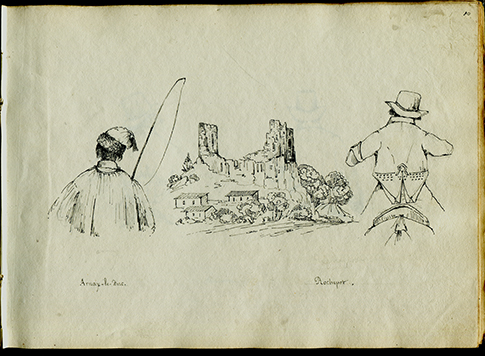 Arnay-le-Duc.
Rochepot.